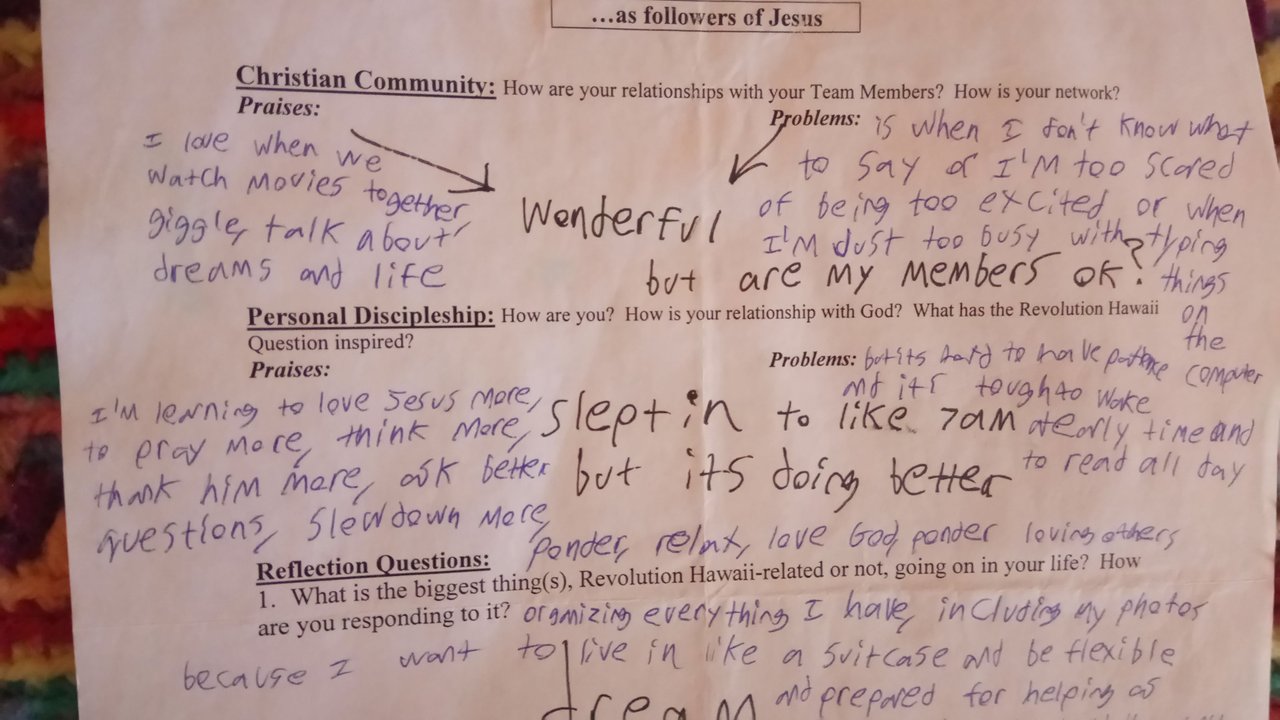 ...as followers of Jesus
Christian Community: How are your relationships with your Team Members? How is your network?
Praises:
I love when we
watch movies together,
giggle, talk about
dreams and life
Wonderful
but are my members ok?
Problems: is when I don't know what
to say or I'm too scared
of being too excited or when
I'm just too busy with typing
things
on
the
computer
Personal Discipleship: How are you? How is your relationship with God? What has the Revolution Hawaii
Question inspired?
Praises:
I'm learning to love Jesus more,
to pray more, think more,
thank him more, ask better
questions, slow down more,
ponder, relax, love God, ponder loving others
slept in to like 7am
but its doing better
Problems: but its hard to have
and it's tough to wake
at early time and
to read all day
Reflection Questions:
1. What is the biggest thing(s), Revolution Hawaii-related or not, going on in your life? How
are you responding to it? organizing everything I have, including my photos
because I want to live in like a suitcase and be flexible
and prepared for helping as
dream